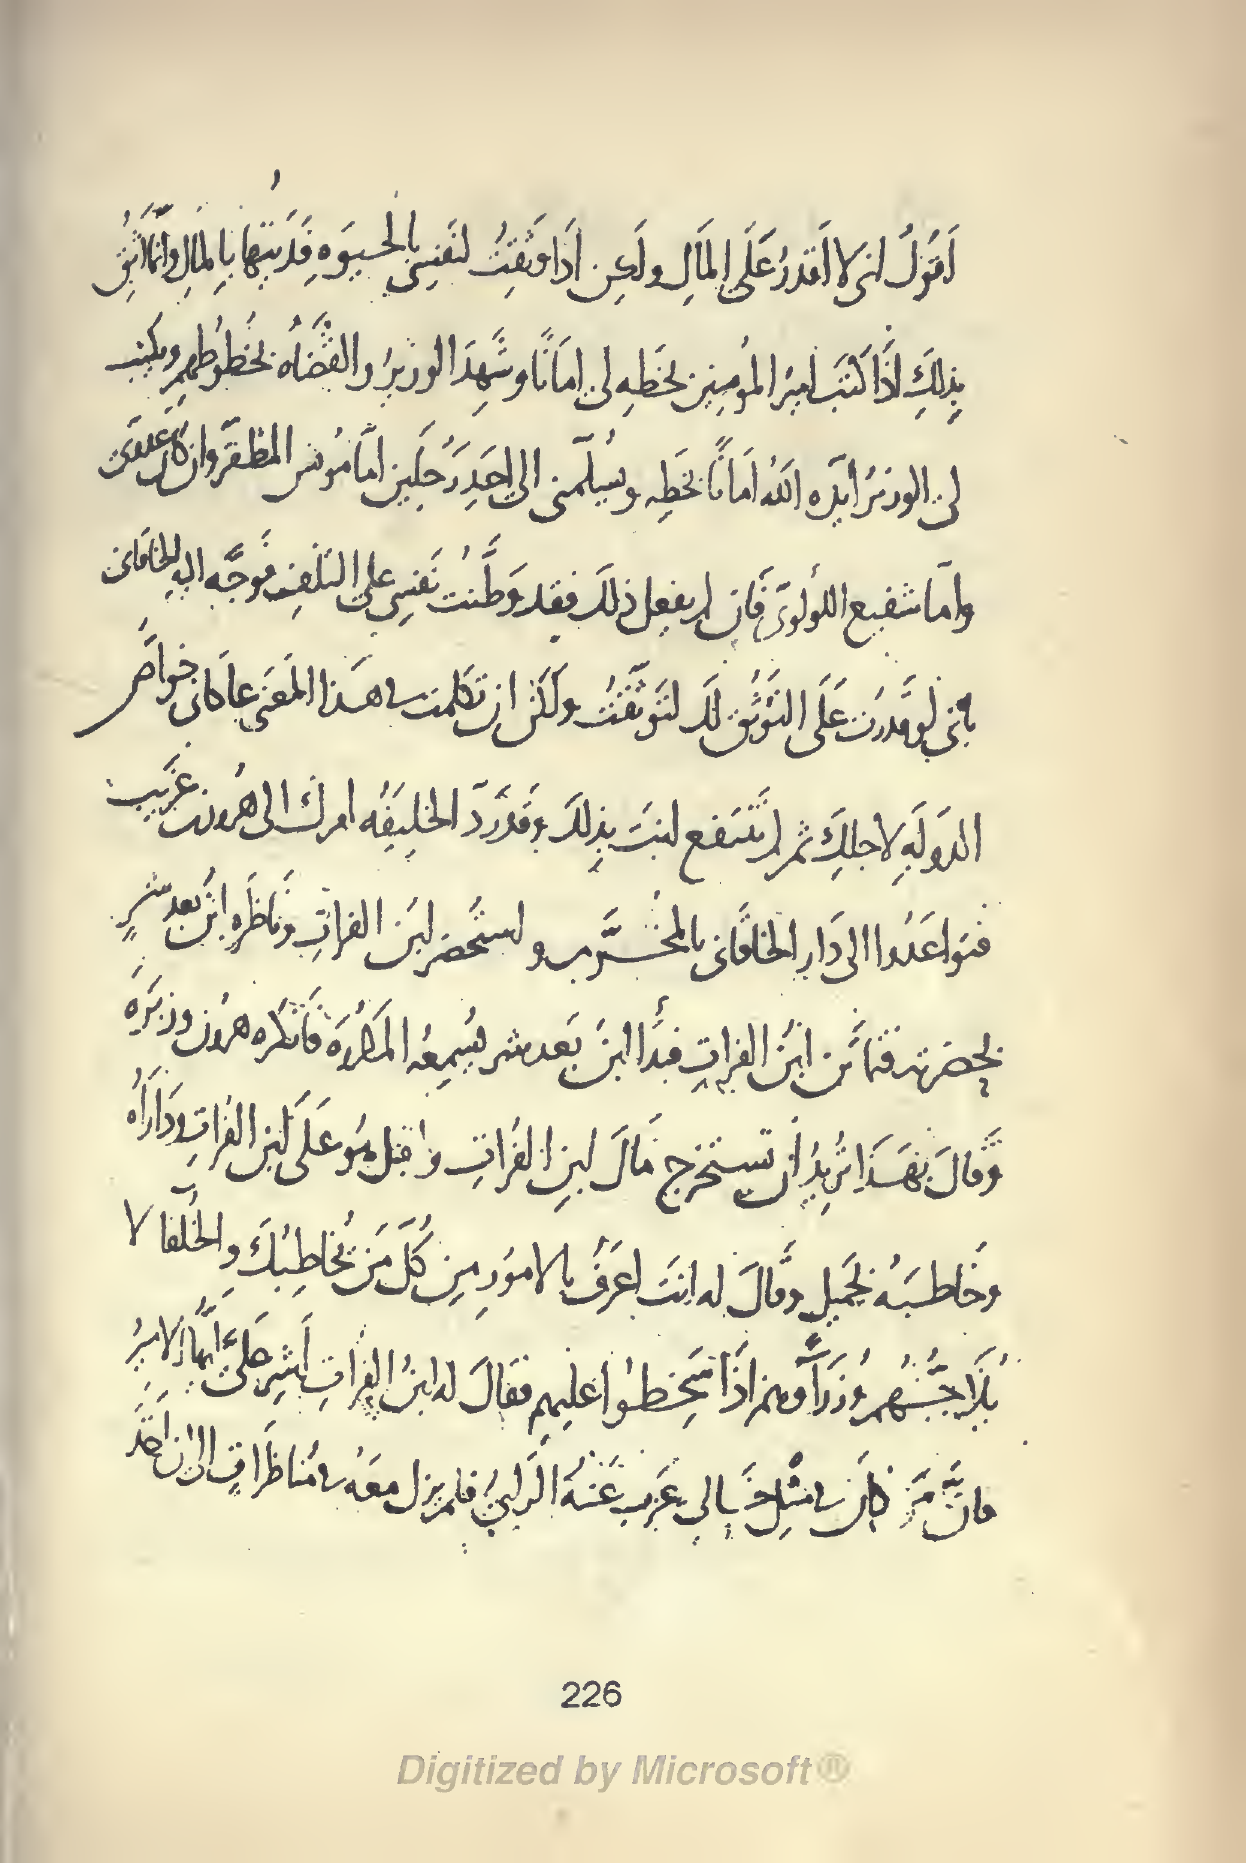 اَقُولُ انى لا اَقدرُ عَلَى المَالِ ولَكِن اذَا وَثقِتُ لنَفسِى بالحيَوه فَدَيتها بِالمالِ وانَّما اثِقُ
بِذلِكَ اذَا كَتَبَ اميرُ المُومِنين بخَطِه لى امَانًا وشَهِدَ الوزيرُ والقُضَاه بخُطوُطهِم ويكتب
لى الوزيرُ ايّدَه اللهُ امَانًا بخَطِه ويُسَلّمنى الى احَدِ رَجُلَين امّا مُونس المظفّر وان كان عدوى
وامّا شفيع اللُولُوىّ فَان لم يفعل ذلكَ فقد وَطَّنت نَفسِى على التلَفِ فَوجَّه اليهِ الخاقانى
بانى لو قَدرَت عَلَى التَوثُّق لكَ لتَوثّقتُ ولَكَنْ ان تكلمت فى هَذا المَعنى عادَانى خواصُّ
الدَولَهِ لاجلِكَ ثم لم تَنتفع انتَ بذِلكَ وقَد رَدّ الخليفَه امركَ الى هُرون بن غريب
فتواعَدُوا الى دَارِ الخاقَانى بالمُخَرَّم واستُحضر ابن الفراتِ ونَاظَرهِ ابنُ بَعد شَرٍ
بحَضرتهِ فتماتَن ابنُ الفراتِ فبَدأ ابنُ بَعد شر يُسمِعُه المَكرُوَه فَانكَره هرُون وزَبَرَه
وقَالَ بِهَذا تُريدُ اَن تستخرج مَالَ ابنِ الفُراتِ واقبل هُو عَلَى ابن الفُراتِ ودَارَاه
وخَاطبَهُ بجَميلٍ وقَالَ له انتَ اعرَفُ بالامورِ مِن كُلّ مَن يُخاطِبُكَ والخُلَفا لا
يُلَاجُّهُم وُزرَآوهم اذَا سَخِطوا عليهم فقَالَ له ابنُ الفراتِ اَشِر عَلىَّ ايُّها الاميرُ
فانَّ مَن كانَ فى مثلِ حَالى عَزبَ عَنهُ الَرأيُ فلم يزل معَهُ فى مُناظَراتٍ الى ان اخَذ
226
Digitized by Microsoft®